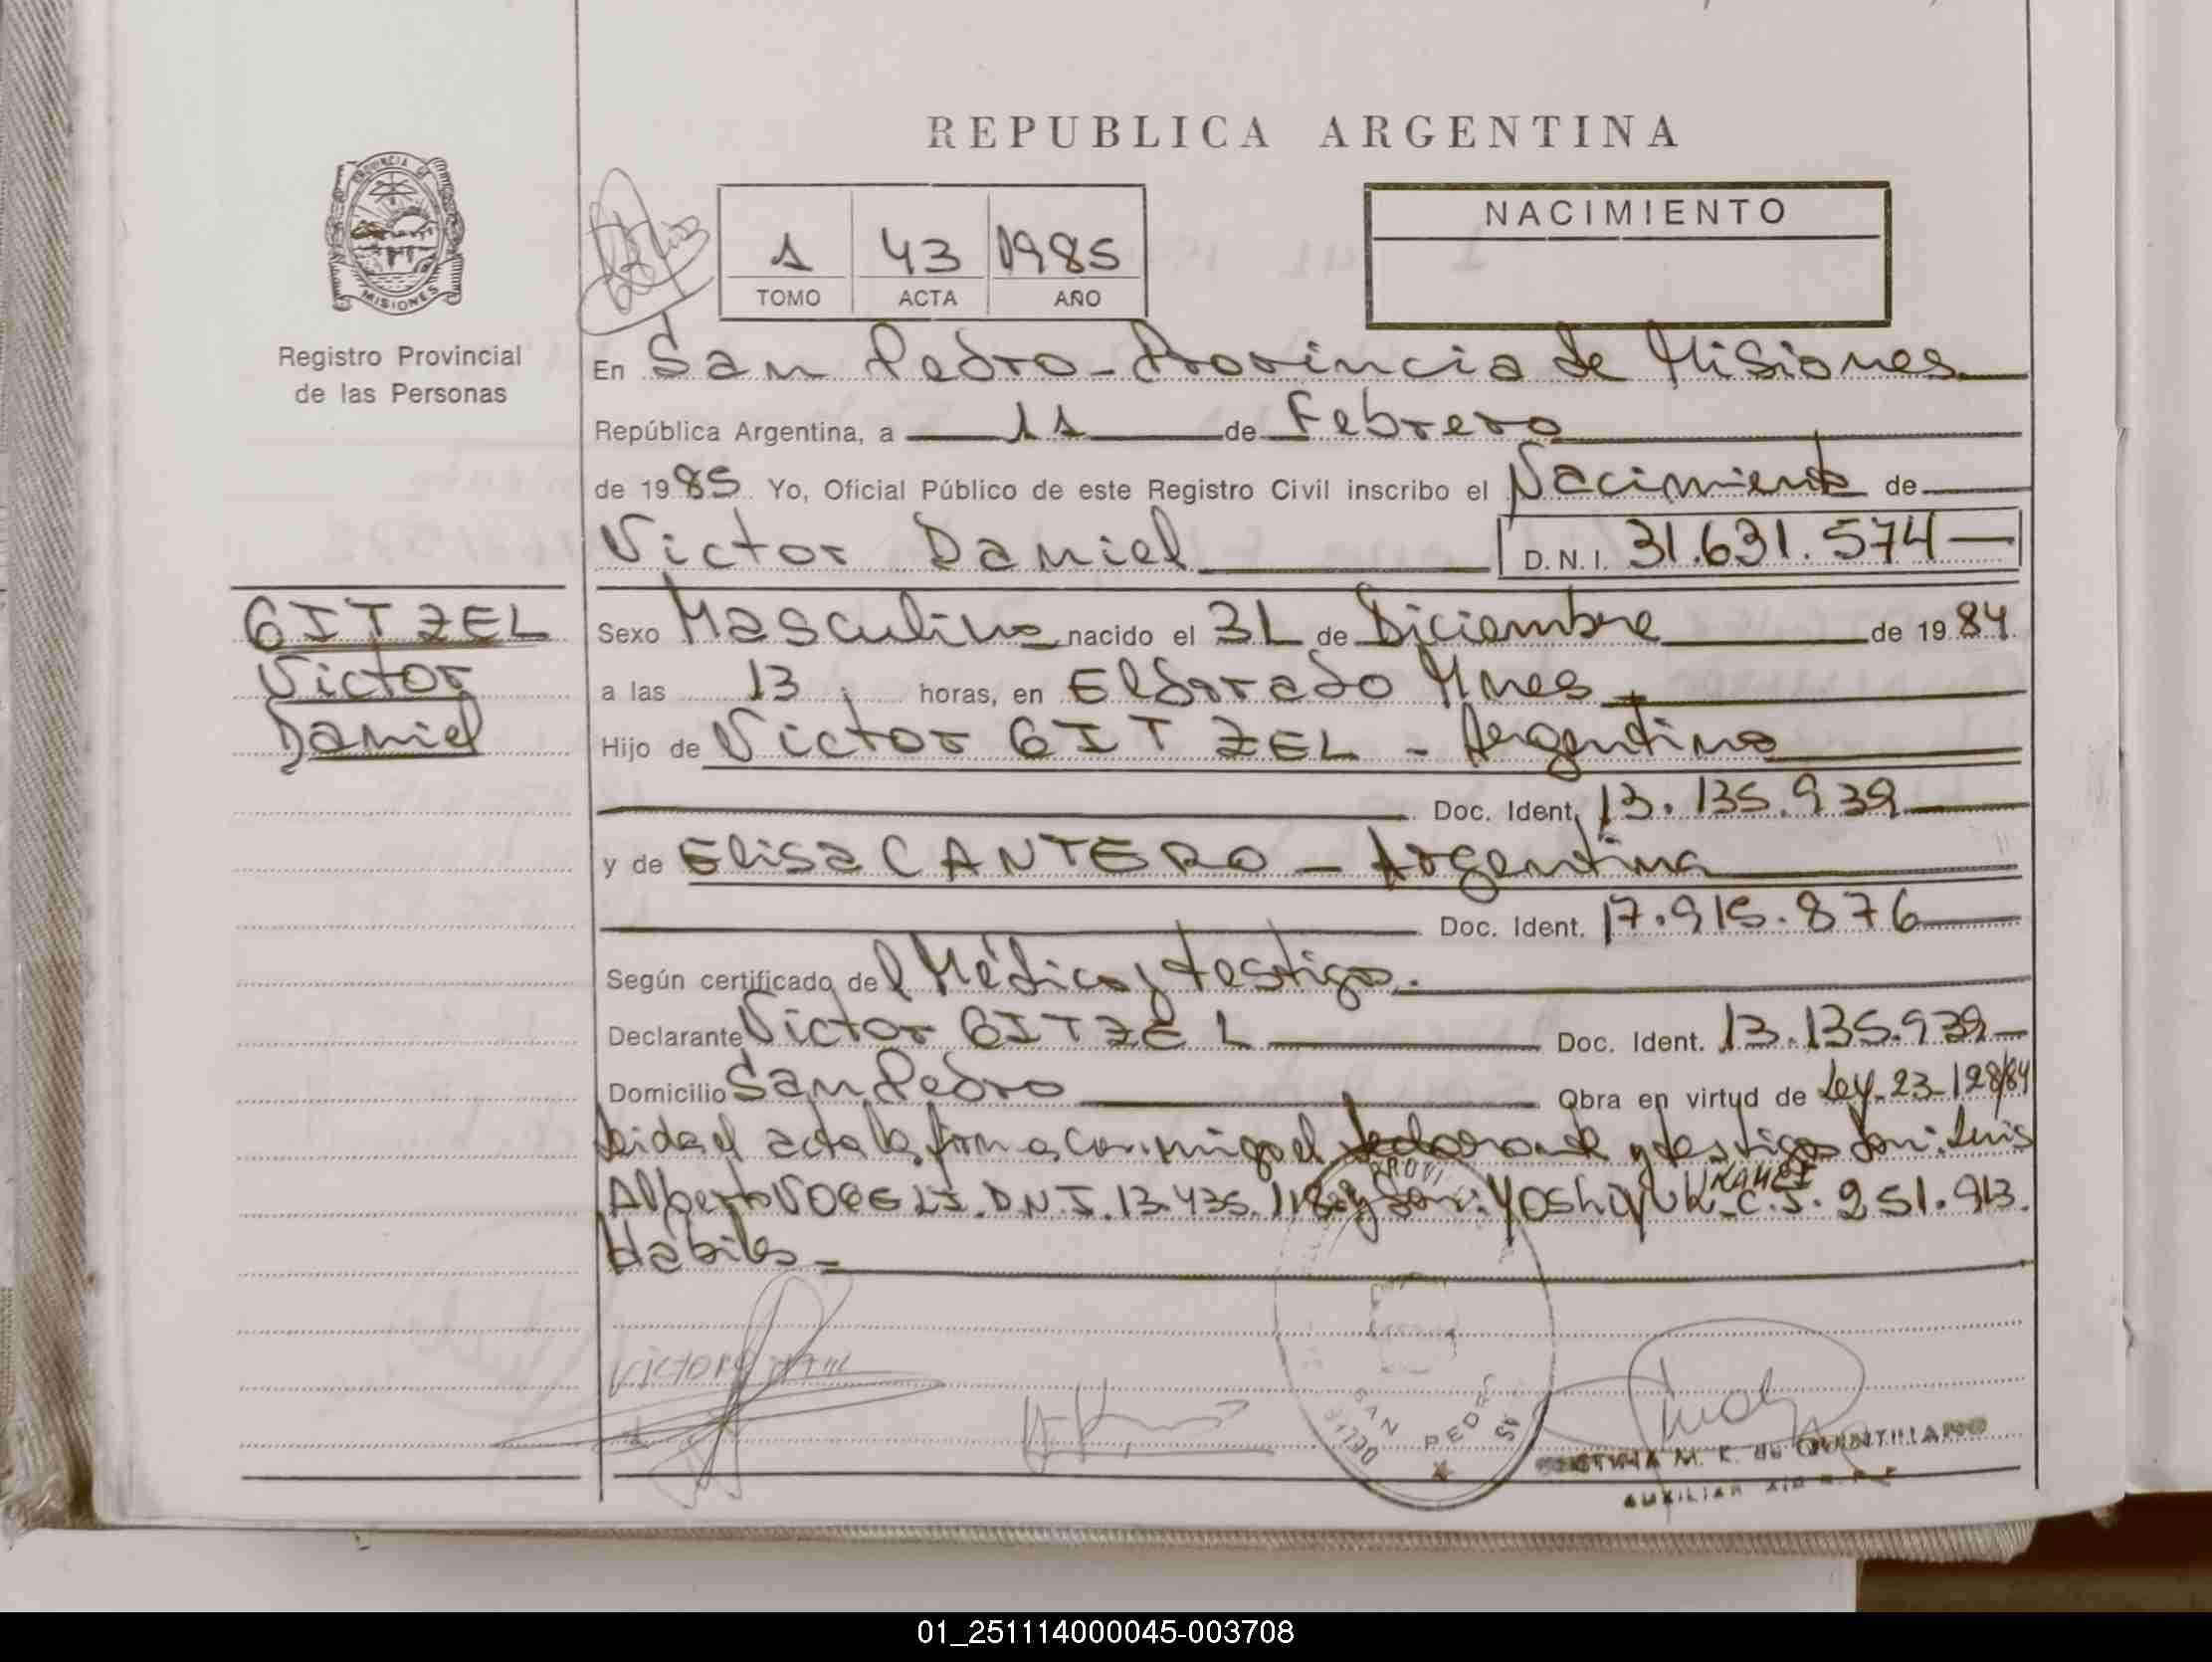 REPUBLICA ARGENTINA
PROVINCIA DE
MISIONES
Registro Provincial
de las Personas
1 43 1985
TOMO ACTA AÑO
NACIMIENTO
En San Pedro - Provincia de Misiones
República Argentina, a 11 de Febrero
de 1985 Yo, Oficial Público de este Registro Civil inscribo el Nacimiento de
Victor Daniel D.N.I. 31.631.574
GITZEL
Victor
Daniel
Sexo Masculino nacido el 31 de Diciembre de 1984
a las 13 horas, en Eldorado Mnes
Hijo de Victor GITZEL - Argentino
Doc. Ident. 13.135.939
y de Elisa CANTERO - Argentina
Doc. Ident. 17.915.876
Según certificado del Médico y testigo.
Declarante Victor GITZEL Doc. Ident. 13.135.939
Domicilio San Pedro Obra en virtud de Ley 23.128/84
Leida el acta la firma conmigo el declarante y testigos Don: Luis
Alberto D.N.I. 13.435. y Don: Yoshiyuk C.I. 251.913.
Hábiles
Victor
SAN PEDRO
M. K. de QUINTILIANO
AUXILIAR
01_251114000045-003708